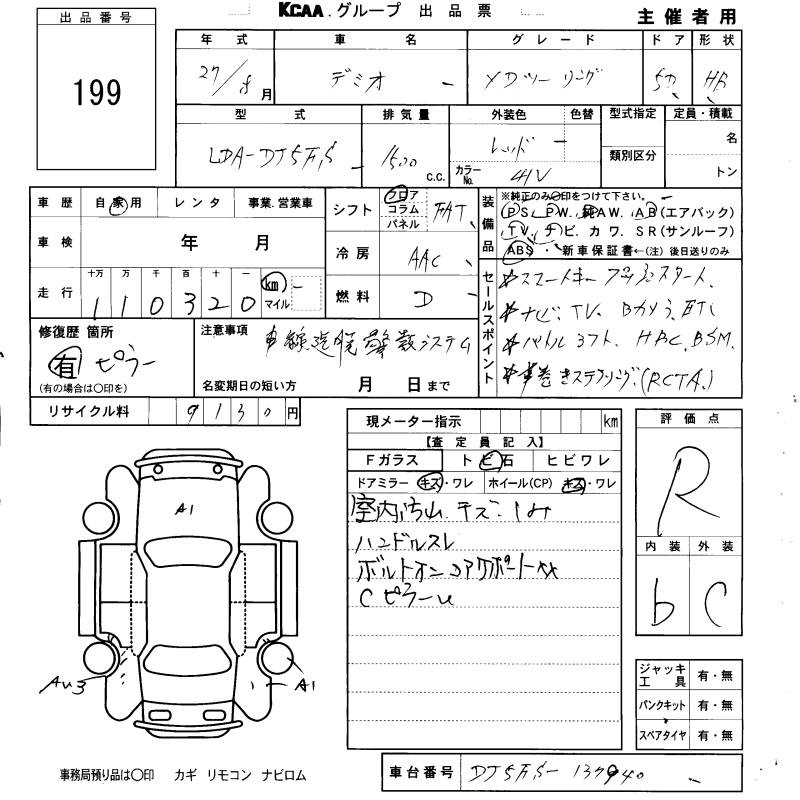 KCAA.グループ 出品票
主催者用
出品番号
199
年式 車名 グレード ドア 形状
27/8月 デミオ XDツーリング 5D HB
型式 排気量 外装色 色替 型式指定 定員・積載
LDA-DJ5FS 1500 c.c. レッド 類別区分 名
カラーNo. 41V トン
車歴 自家用 レンタ 事業.営業車
シフト フロア コラム パネル FAT
装備品
※純正のみ○印をつけて下さい。
PS. PW. 純AW. AB(エアバック)
TV. ナビ. カワ. SR(サンルーフ)
ABS ・ 新車保証書←(注) 後日送りのみ
車検 年 月
冷房 AAC
走行 十万 万 千 百 十 一
110320 km マイル
燃料 D
セールスポイント
スマートキー プッシュスタート.
ナビ. TV. Bカメラ. ETC
パドルシフト. HBC. BSM.
革巻きステアリング.(RCTA.)
修復歴 箇所
有 ピラー
(有の場合は○印を)
注意事項
車線逸脱警報システム
名変期日の短い方 月 日まで
リサイクル料 9130円
現メーター指示 km
【査定員記入】
Fガラス トビ石 ヒビワレ
ドアミラー キズ・ワレ ホイール(CP) キズ・ワレ
室内汚れ. キズ. シミ
ハンドルスレ
ボルトオン コアサポートXX
Cピラーu
評価点
R
内装 外装
b C
A1
AU3
A1
ジャッキ工具 有・無
パンクキット 有・無
スペアタイヤ 有・無
事務局預り品は○印 カギ リモコン ナビロム
車台番号 DJ5FS-137940